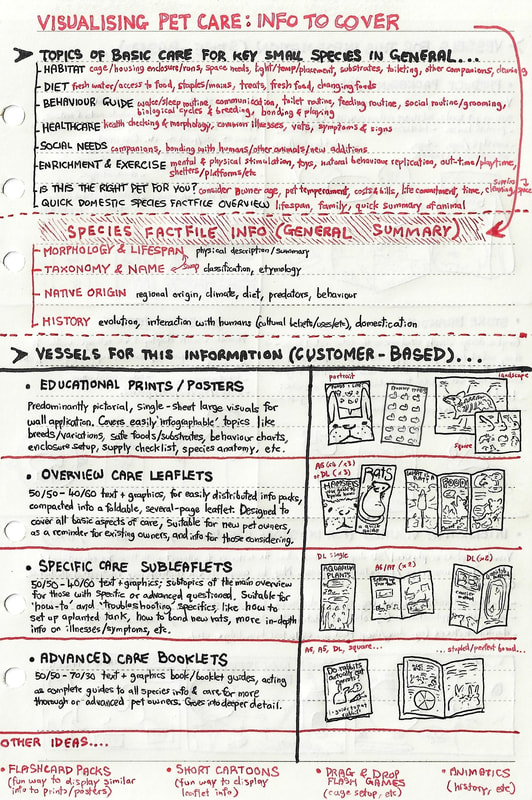 VISUALISING PET CARE: INFO TO COVER
➤ TOPICS OF BASIC CARE FOR KEY SMALL SPECIES IN GENERAL...
- HABITAT cage/housing enclosure/runs, space needs, light/temp/placement, substrates, toileting, other companions, cleaning
- DIET fresh water/access to food, staples/mains, treats, fresh food, changing foods
- BEHAVIOUR GUIDE wake/sleep routine, communication, toilet routine, feeding routine, social routine/grooming,
biological cycles & breeding, bonding & playing
- HEALTHCARE health checking & morphology, common illnesses, vets, symptoms & signs
- SOCIAL NEEDS companions, bonding with humans/other animals/new additions
- ENRICHMENT & EXERCISE mental & physical stimulation, toys, natural behaviour replication, out-time/playtime,
shelters/platforms/etc
- IS THIS THE RIGHT PET FOR YOU? consider owner age, pet temperament, costs & bills, life commitment, time, cleaning, space
- QUICK DOMESTIC SPECIES FACTFILE OVERVIEW lifespan, family, quick summary of animal
SPECIES FACTFILE INFO (GENERAL SUMMARY)
- MORPHOLOGY & LIFESPAN physical description/summary
- TAXONOMY & NAME swap classification, etymology
- NATIVE ORIGIN regional origin, climate, diet, predators, behaviour
- HISTORY evolution, interaction with humans (cultural beliefs/uses/etc), domestication
➤ VESSELS FOR THIS INFORMATION (CUSTOMER-BASED)...
• EDUCATIONAL PRINTS/POSTERS
Predominantly pictorial, single-sheet large visuals for
wall application. Covers easily 'infographable' topics like
breeds/variations, safe foods/substrates, behaviour charts,
enclosure setup, supply checklist, species anatomy, etc.
portrait
landscape
square
• OVERVIEW CARE LEAFLETS
50/50-40/60 text + graphics, for easily distributed info packs,
compacted into a foldable, several-page leaflet. Designed to
cover all basic aspects of care, suitable for new pet owners,
as a reminder for existing owners, and info for those considering.
or DL (x3)
HAMSTERS
RATS
FOOD
• SPECIFIC CARE SUBLEAFLETS
50/50-40/60 text + graphics; subtopics of the main overview
for those with specific or advanced questioned. Suitable for
'how-to' and 'troubleshooting' specifics, like how to
set up a planted tank, how to bond new rats, more in-depth
info on illnesses/symptoms, etc.
DL single
A6/A7 (x2)
DL (x2)
AQUARIUM
PLANTS
• ADVANCED CARE BOOKLETS
50/50-70/30 text + graphics book/booklet guides, acting
as complete guides to all species info & care for more
thorough or advanced pet owners. Goes into deeper detail.
A6, A5, DL, square...
...stapled/perfect bound...
Do rabbits
actually eat
carrots?
OTHER IDEAS....
• FLASHCARD PACKS
(fun way to display similar
info to prints/posters)
• SHORT CARTOONS
(fun way to display
leaflet info)
• DRAG & DROP
FLASH GAMES
(cage setup, etc)
• ANIMATICS
(history, etc)